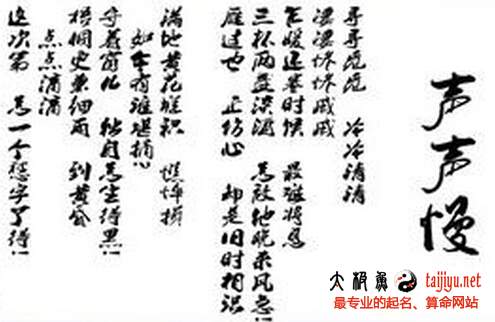 声声慢
寻寻觅觅 冷冷清清
凄凄惨惨戚戚
乍暖还寒时候 最难将息
三杯两盏淡酒 怎敌他晚来风急!!
雁过也 正伤心 却是旧时相识
满地黄花堆积 憔悴损
如今有谁堪摘
守着窗儿 独自怎生得黑!!
梧桐更兼细雨 到黄昏
点点滴滴
这次第 怎一个愁字了得!!
太极鱼 taijiyu.net
最专业的起名、算命网站